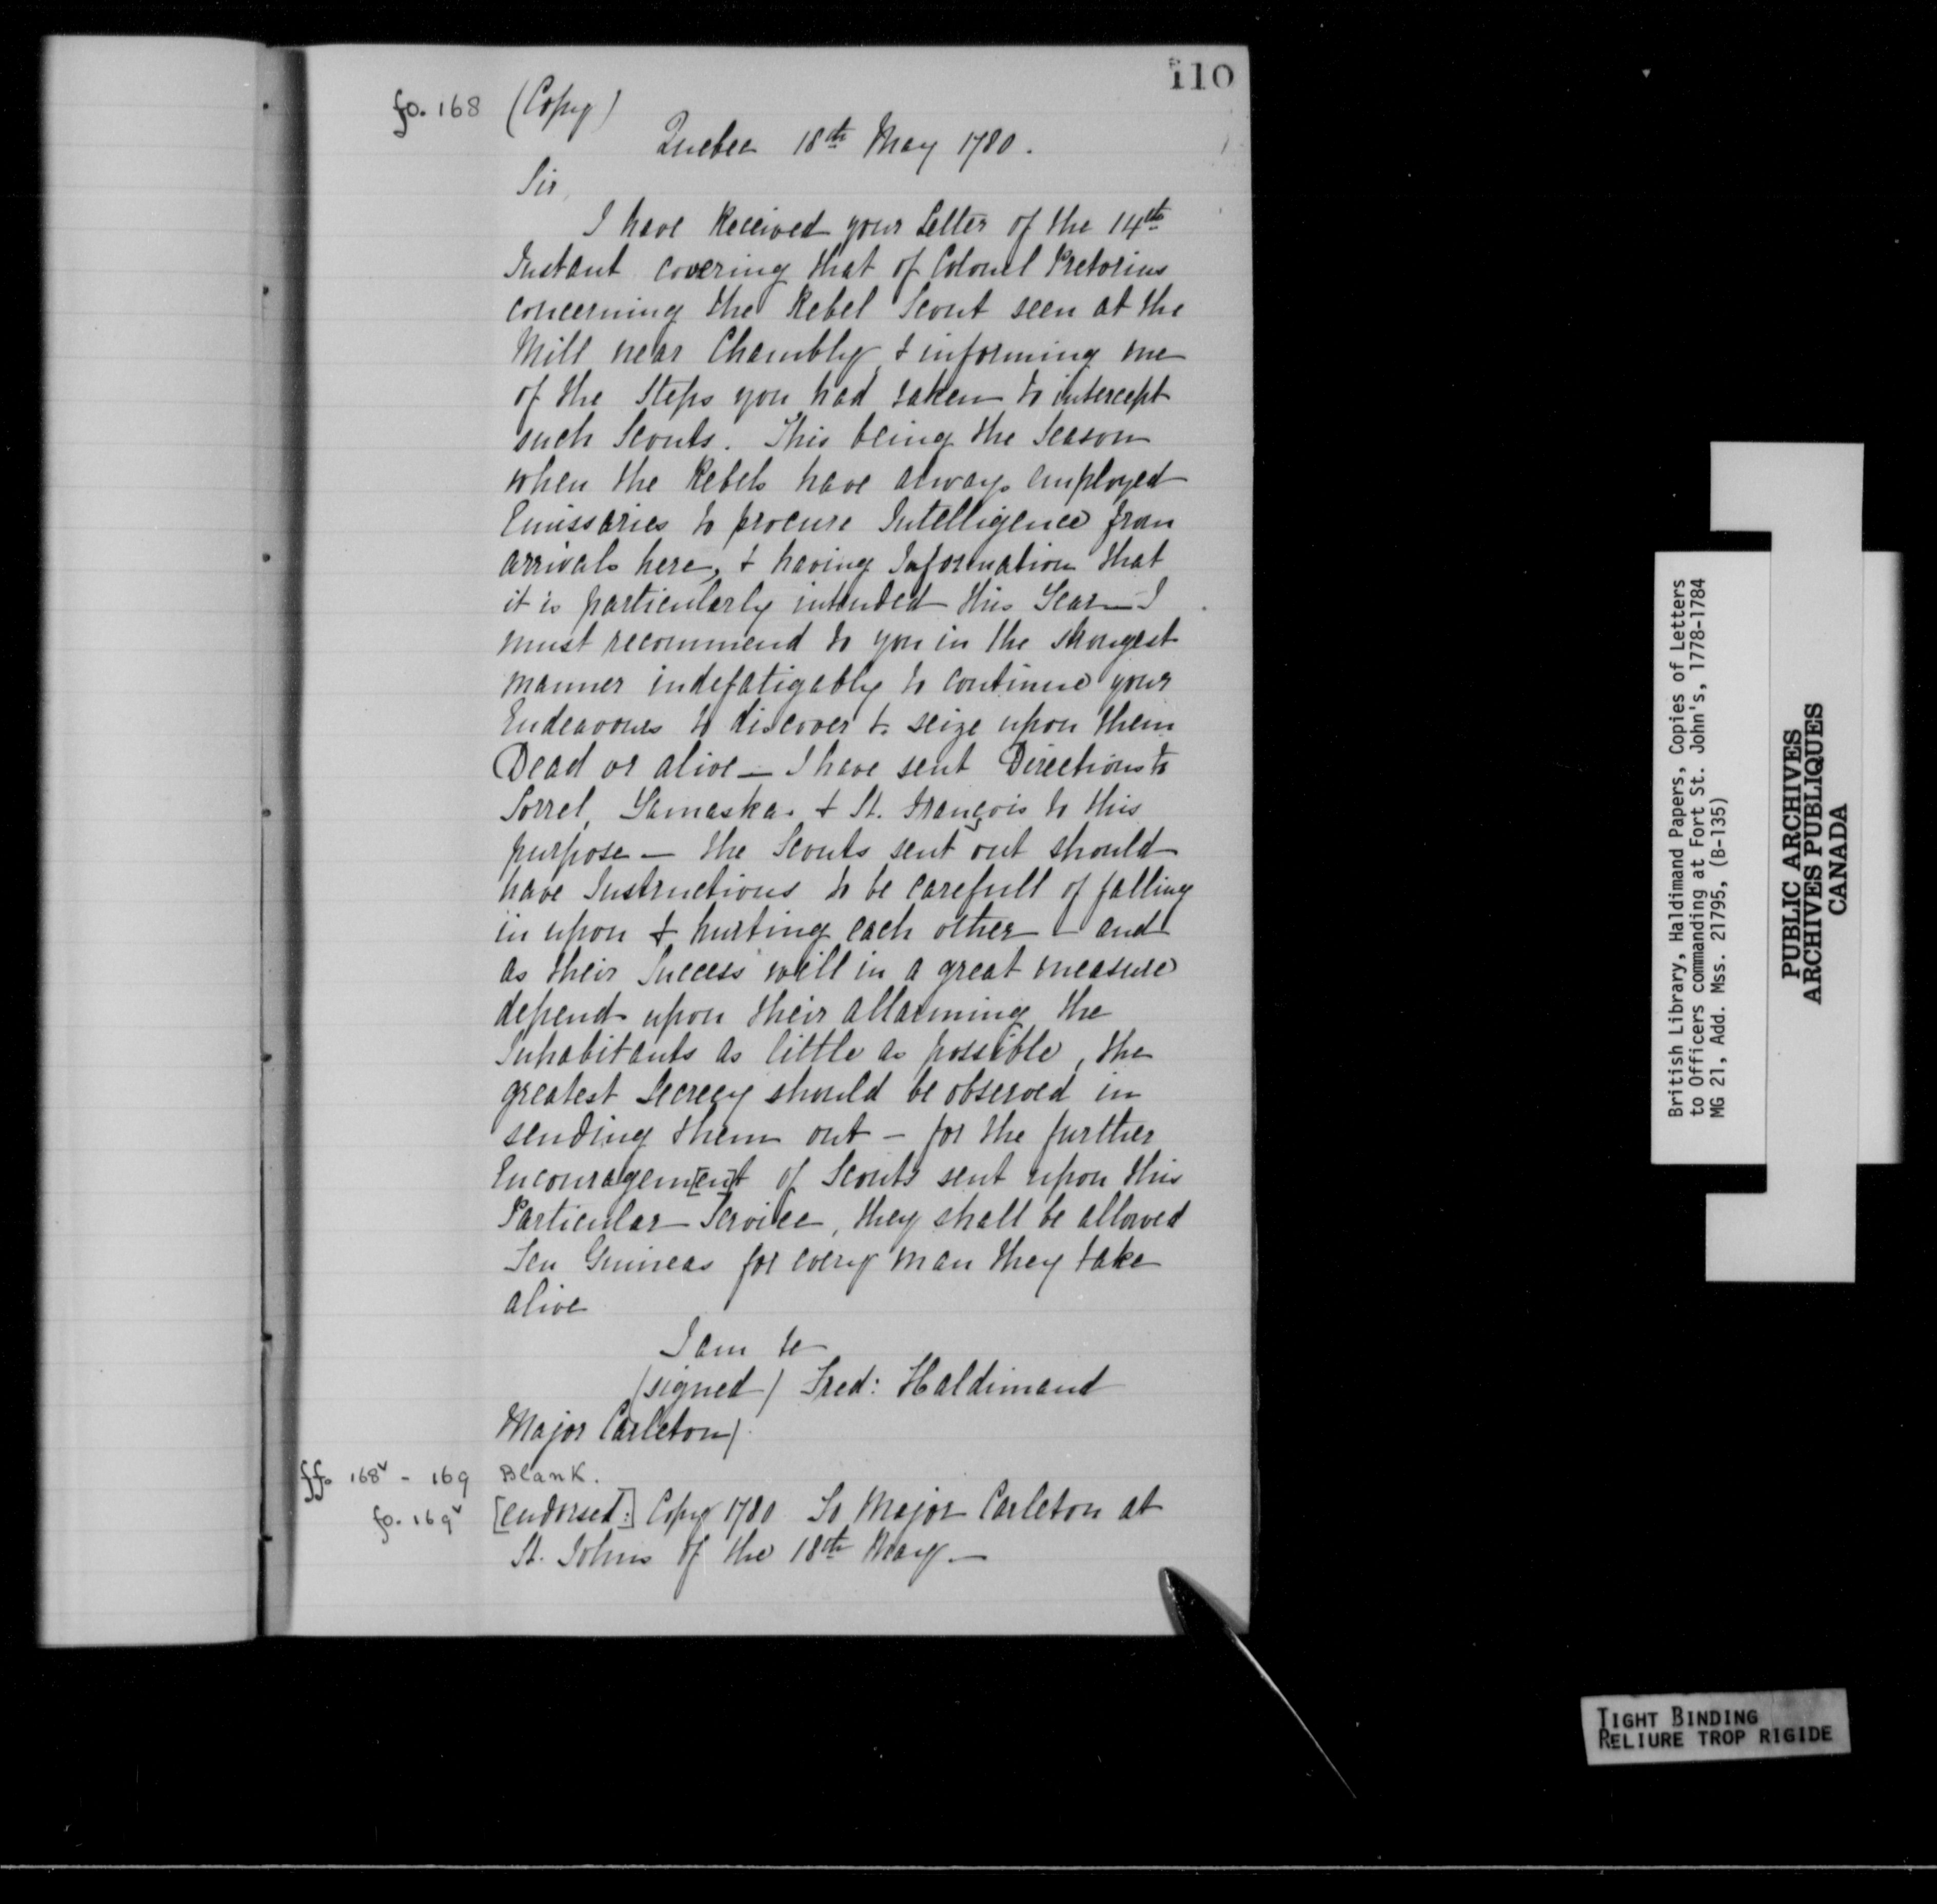 110
fo. 168 (Copy)
Quebec 18th May 1780.
Sir,
I have Received your Letter of the 14th
Instant covering that of Colonel Pretorius
concerning the Rebel Scout seen at the
Mill near Chambly, & informing me
of the Steps you had taken to intercept
such Scouts. This being the Season
when the Rebels have always employed
Emissaries to procure Intelligence from
arrivals here, & having Information that
it is particularly intended this Year — I
must recommend to you in the strongest
manner indefatigably to continue your
Endeavours to discover & seize upon them
Dead or alive — I have sent Directions to
Sorrel, Yamaska & St. François to this
purpose — the Scouts sent out should
have Instructions to be carefull of falling
in upon & hurting each other — and
as their Success will in a great measure
depend upon their allarming the
Inhabitants as little as possible, the
greatest Secrecy should be observed in
sending them out — for the further
Encouragem[en]t of Scouts sent upon this
Particular Service, they shall be allowed
Ten Guineas for every man they take
alive
I am &c
(signed) Fred: Haldimand
Major Carleton)
ff. 168v - 169 Blank.
fo. 169v [endorsed:] Copy 1780 To Major Carleton at
St. Johns of the 18th May —
British Library, Haldimand Papers, Copies of Letters
to Officers commanding at Fort St. John's, 1778-1784
MG 21, Add. Mss. 21795, (B-135)
PUBLIC ARCHIVES
ARCHIVES PUBLIQUES
CANADA
TIGHT BINDING
RELIURE TROP RIGIDE